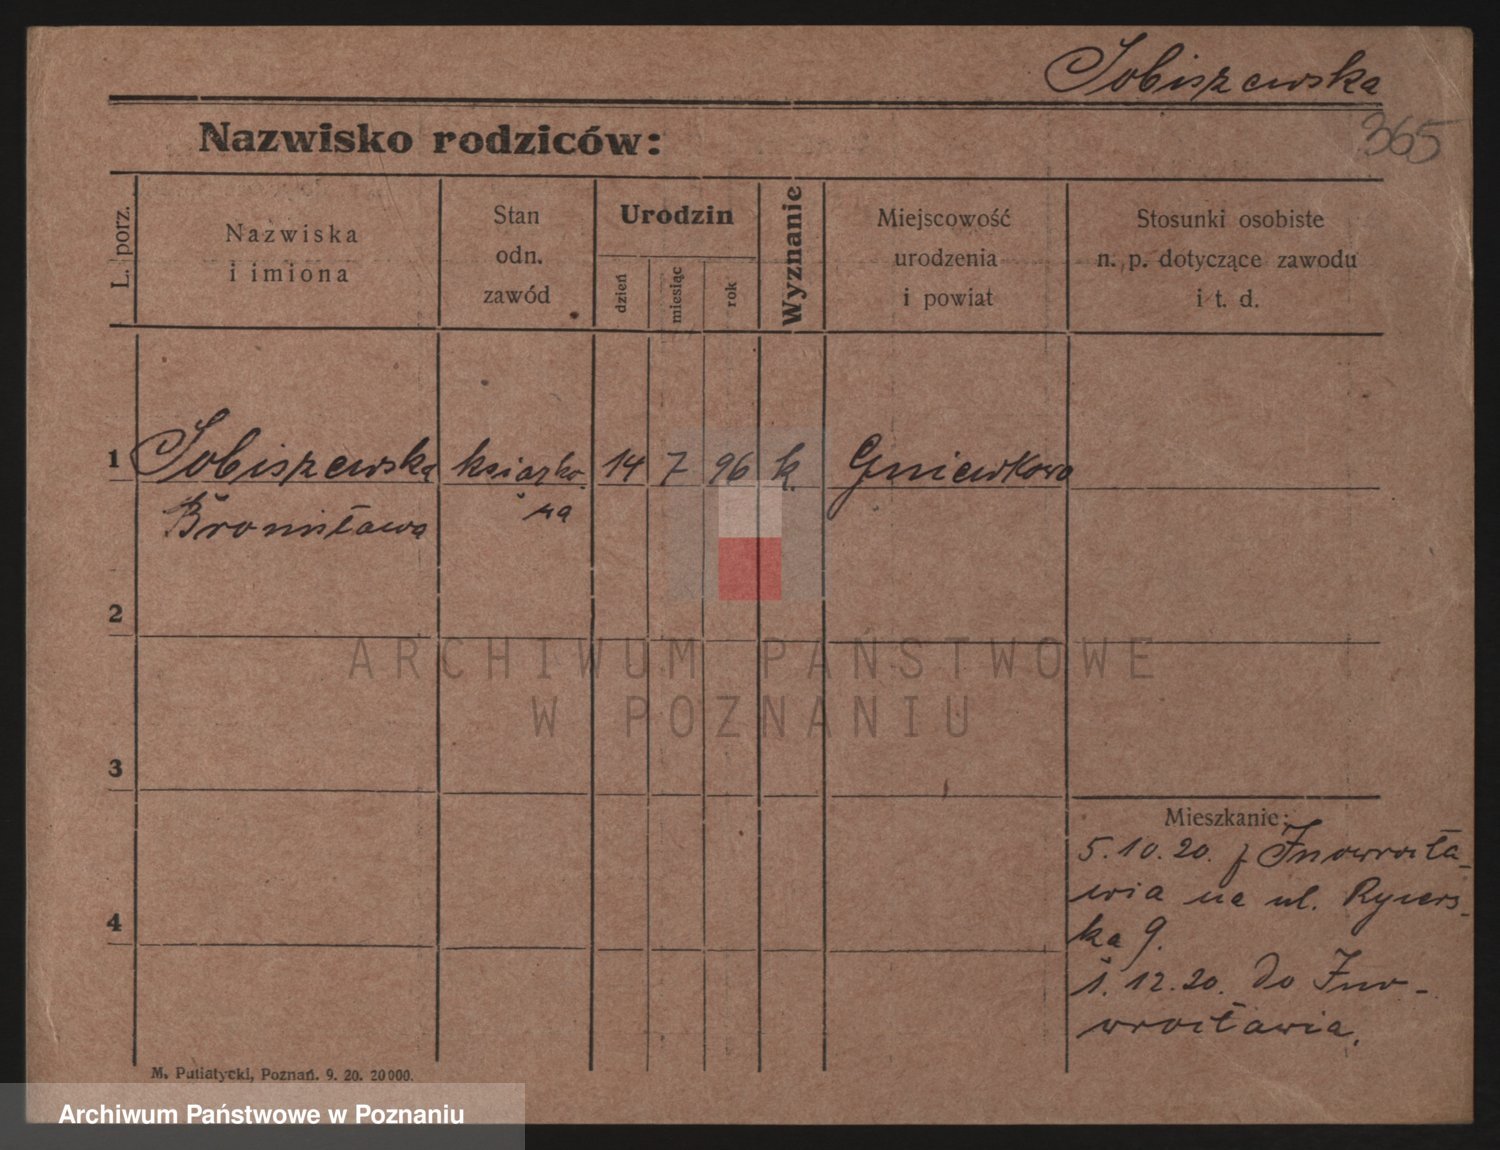 Sobiszewska
365
Nazwisko rodziców:
L. porz.
Nazwiska
i imiona
Stan
odn.
zawód
Urodzin
dzień
miesiąc
rok
Wyznanie
Miejscowość
urodzenia
i powiat
Stosunki osobiste
n. p. dotyczące zawodu
i t. d.
1 Sobiszewska książko 14 7 96 k. Gniewkowo
Bronisława wa
2
3
4
Mieszkanie:
5.10.20. z Inowrocła-
wia na ul. Rycers-
ka 9.
1.12.20. do Ino-
wrocławia.
M. Putiatycki, Poznań. 9. 20. 20000.
ARCHIWUM PAŃSTWOWE
W POZNANIU
Archiwum Państwowe w Poznaniu